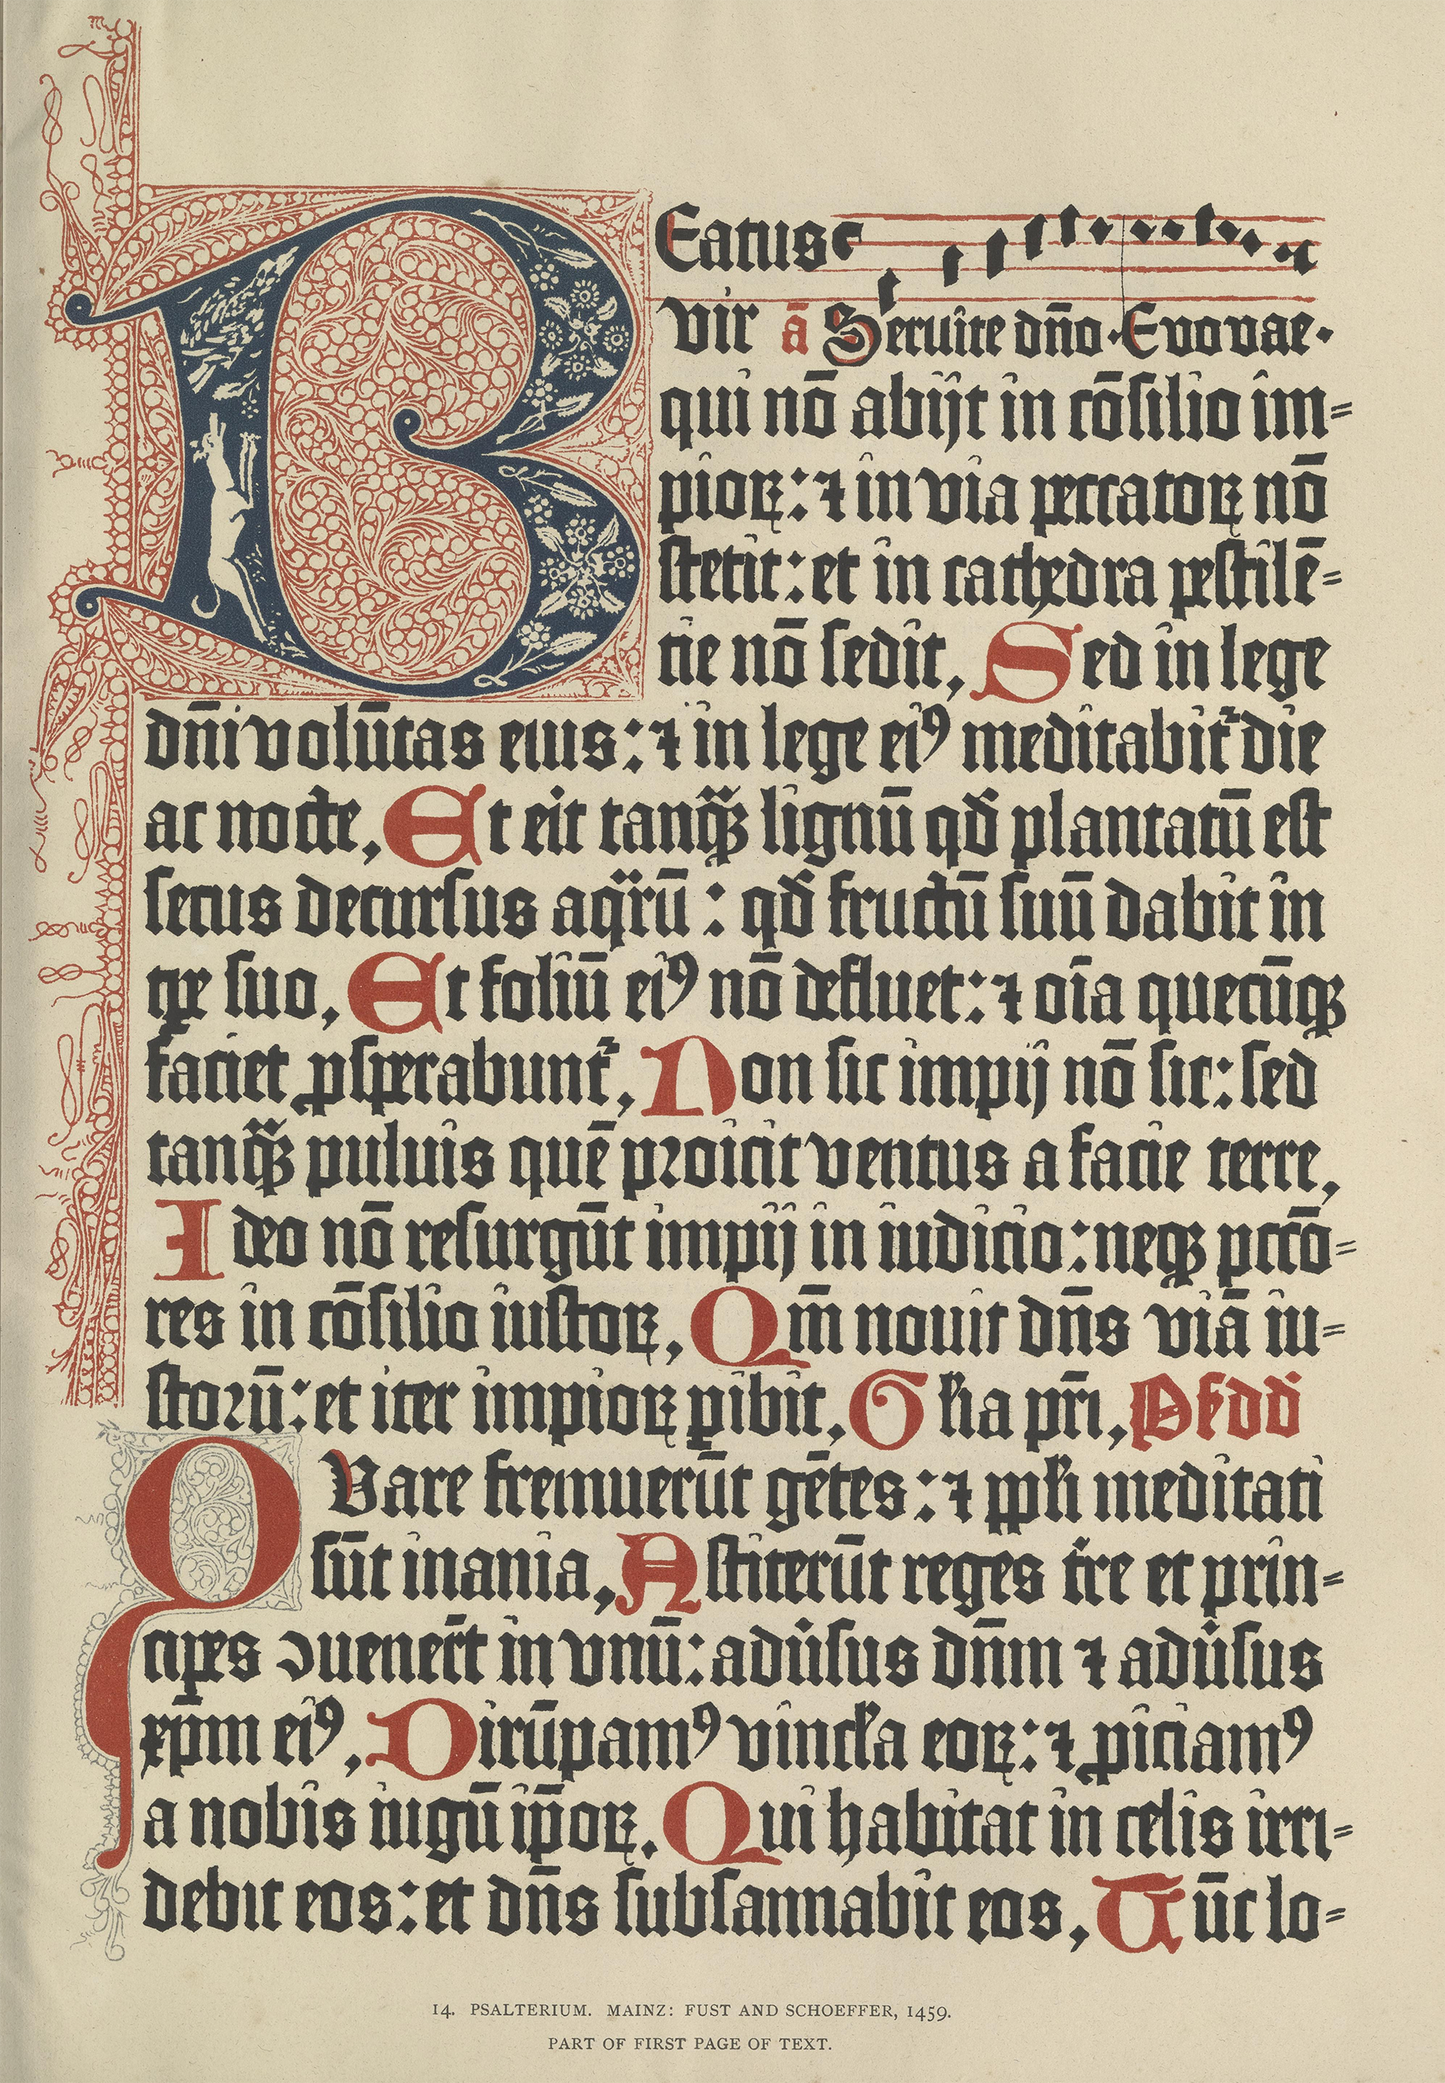 BEatus
vir ā Seruite dño · Evovae ·
qui nō abijt in cōsilio im=
pioꝝ: ⁊ in via peccatoꝝ nō
stetit: et in cathedra pestilē=
tie nō sedit, Sed in lege
dñi volūtas eius: ⁊ in lege eiꝰ meditabit᷑ die
ac nocte, Et erit tanqͣꝫ lignū qđ plantatū est
secus decursus aqͣrū: qđ fructū suū dabit in
tp̄e suo, Et foliū eiꝰ nō defluet: ⁊ oīa quecūqꝫ
faciet ꝓsperabunt᷑, Non sic impij nō sic: sed
tanqͣꝫ puluis quē proicit ventus a facie terre,
Ideo nō resurgūt impij in iudicio: neqꝫ pctō=
res in cōsilio iustoꝝ, Qm̄ nouit dñs viā iu=
storū: et iter impioꝝ ꝑibit, Gꝉia pr̄i, Ps dd
QVare fremuerūt gētes: ⁊ ppꝉi meditati
sūt inania, Astiterūt reges t̄re et prin=
cipes ꝯuener̄t in vnū: adūsus dñm ⁊ adūsus
xp̄m eiꝰ, Dirūpamꝰ vincꝉa eoꝝ: ⁊ ꝓiciamꝰ
a nobis iugū ip̄oꝝ. Qui habitat in celis irri=
debit eos: et dñs subsannabit eos, Tūc lo=
14. PSALTERIUM. MAINZ: FUST AND SCHOEFFER, 1459.
PART OF FIRST PAGE OF TEXT.